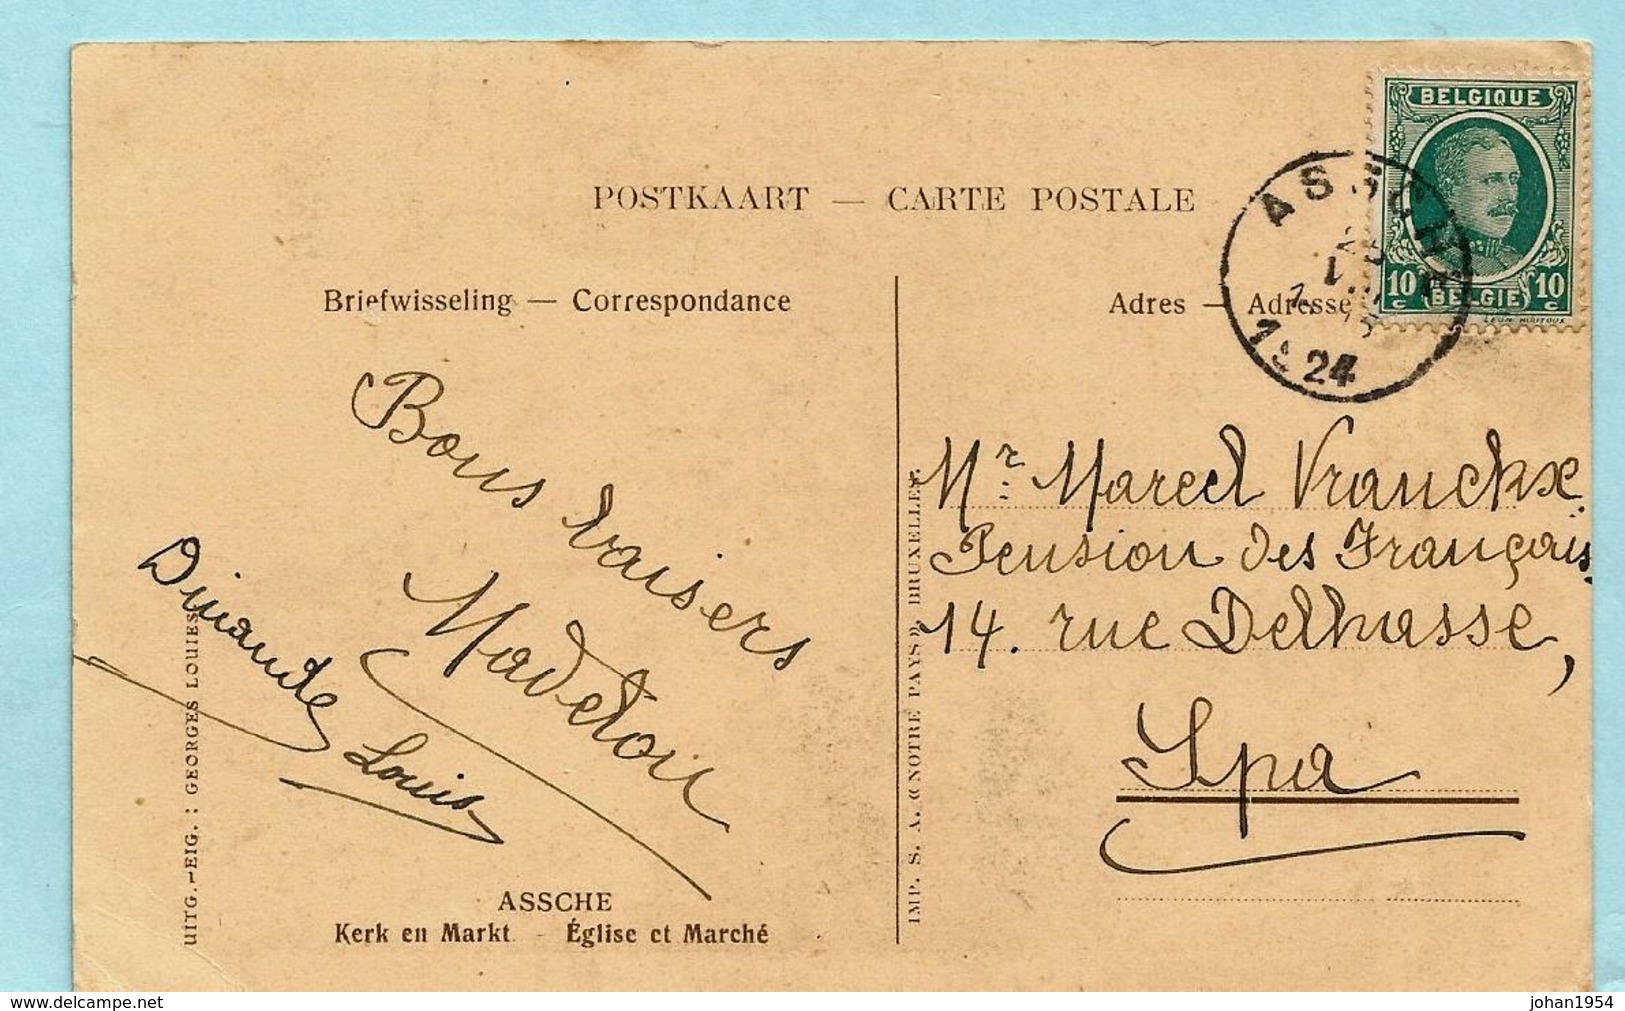 POSTKAART — CARTE POSTALE
BELGIQUE
10 c
BELGIE
10 c
ASSCHE
1924
Briefwisseling — Correspondance
Adres — Adresse
Bons baisers
Madelon
Louis
Mr. Marcel Vranckx
Pension des Français
14. rue Delhasse,
Spa
UITG.-EIG. : GEORGES LOUIES
IMP. S. A. « NOTRE PAYS », BRUXELLES.
ASSCHE
Kerk en Markt - Église et Marché
www.delcampe.net
johan1954